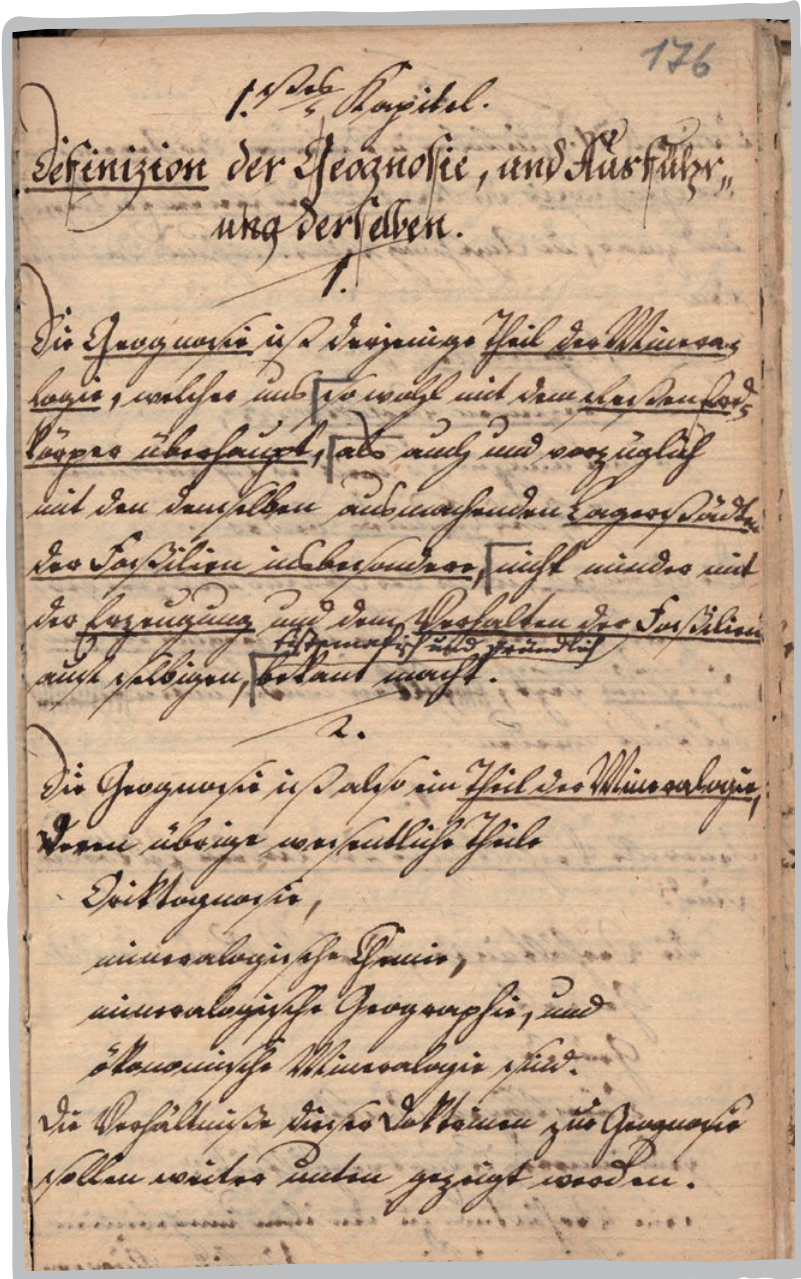 176
1.stes Kapitel.
Definizion der Geognosie, und Ausführ„
ung derselben.
1.
Die Geognosie ist derjenige Theil der Minera„
logie, welcher uns sowohl mit dem festen Erd„
körper überhaupt, als auch und vorzüglich
mit den denselben ausmachenden Lagerstädten
der Foßilien insbesondere, nicht minder mit
der Erzeugung und dem Verhalten der Foßilien
sistematisch und gründlich
auf selbigen, bekant macht.
2.
Die Geognosie ist also ein Theil der Mineralogie,
deren übrige wesentliche Theile
Oriktognosie,
mineralogische Chemie,
mineralogische Geographie, und
ökonomische Mineralogie sind.
Die Verhältniße dieser Doktrinen zur Geognosie
sollen weiter unten gezeigt werden.